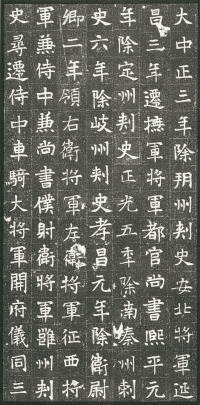 大中正三年除朔州刺史安北將軍延
昌三年遷撫軍將軍都官尚書熙平元
年除定州刺史正光五年除南秦州刺
史六年除岐州刺史孝昌元年除衛尉
卿二年領右衛將軍左衛將軍征西將
軍兼侍中兼尚書僕射衛將軍雍州刺
史尋遷侍中車騎大將軍開府儀同三